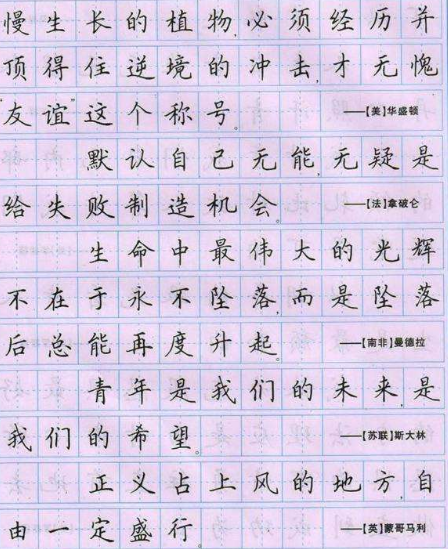 慢生长的植物,必须经历并
顶得住逆境的冲击,才无愧
"友谊"这个称号。 ——【美】华盛顿
默认自己无能,无疑是
给失败制造机会。 ——【法】拿破仑
生命中最伟大的光辉
不在于永不坠落,而是坠落
后总能再度升起。 ——【南非】曼德拉
青年是我们的未来,是
我们的希望。 ——【苏联】斯大林
正义占上风的地方,自
由一定盛行。 ——【英】蒙哥马利